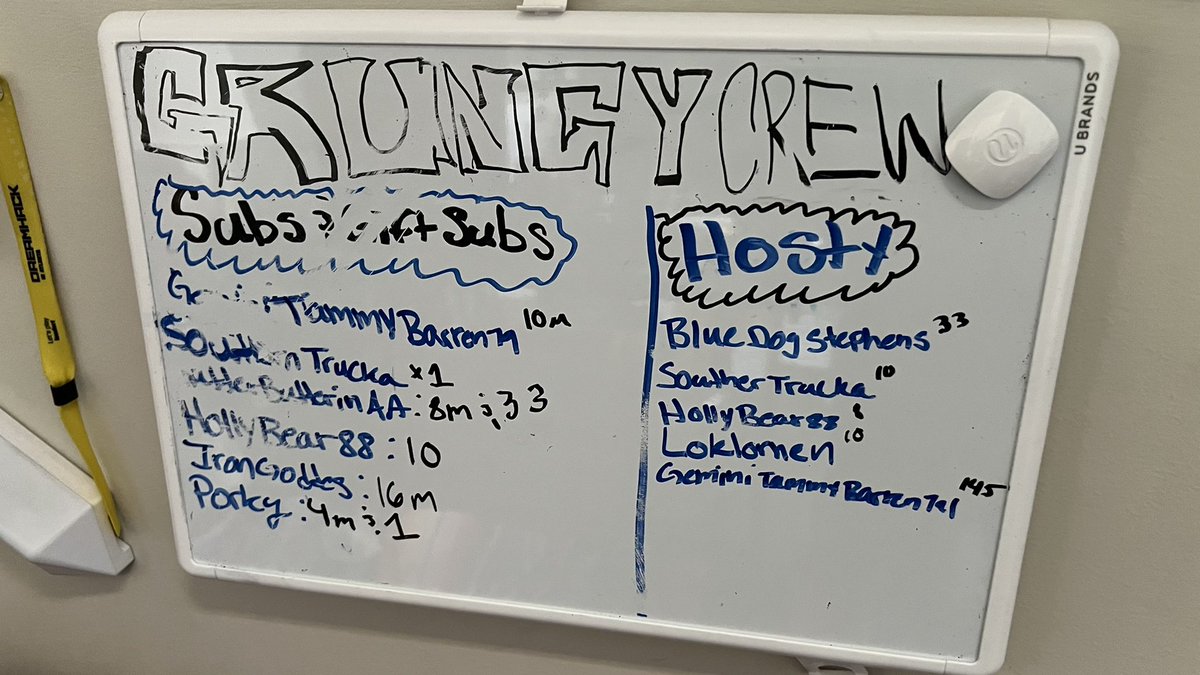 GRUNGY CREW
U BRANDS
DREAMHACK
Subs Gift Subs
Gemini Tammy Barrenty 10m
Southern Trucka x1
utterButterinAA: 8m ; 33
HollyBear88: 10
IronGoddes: 16m
Porky: 4m ; 1
Hosty
BlueDogStephens 33
SoutherTrucka 10
HollyBear88 8
Loklomen 10
Gemini Tammy Barrental 145